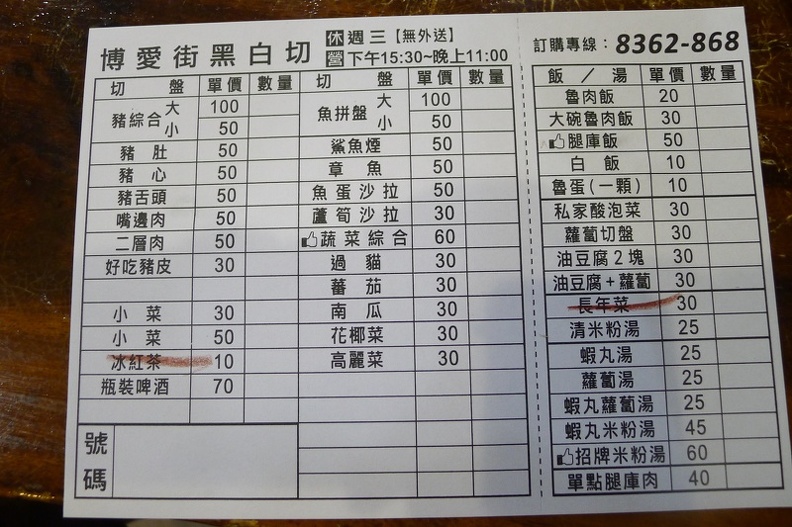 博愛街黑白切 休 週三【無外送】
營 下午15:30~晚上11:00
訂購專線：8362-868
切盤 單價 數量 切盤 單價 數量 飯／湯 單價 數量
豬綜合 大 100 魚拼盤 大 100 魯肉飯 20
小 50 小 50 大碗魯肉飯 30
豬肚 50 鯊魚煙 50 腿庫飯 50
豬心 50 章魚 50 白飯 10
豬舌頭 50 魚蛋沙拉 50 魯蛋(一顆) 10
嘴邊肉 50 蘆筍沙拉 30 私家酸泡菜 30
二層肉 50 蔬菜綜合 60 蘿蔔切盤 30
好吃豬皮 30 過貓 30 油豆腐2塊 30
蕃茄 30 油豆腐+蘿蔔 30
小菜 30 南瓜 30 長年菜 30
小菜 50 花椰菜 30 清米粉湯 25
冰紅茶 10 高麗菜 30 蝦丸湯 25
瓶裝啤酒 70 蘿蔔湯 25
蝦丸蘿蔔湯 25
蝦丸米粉湯 45
招牌米粉湯 60
單點腿庫肉 40
號碼